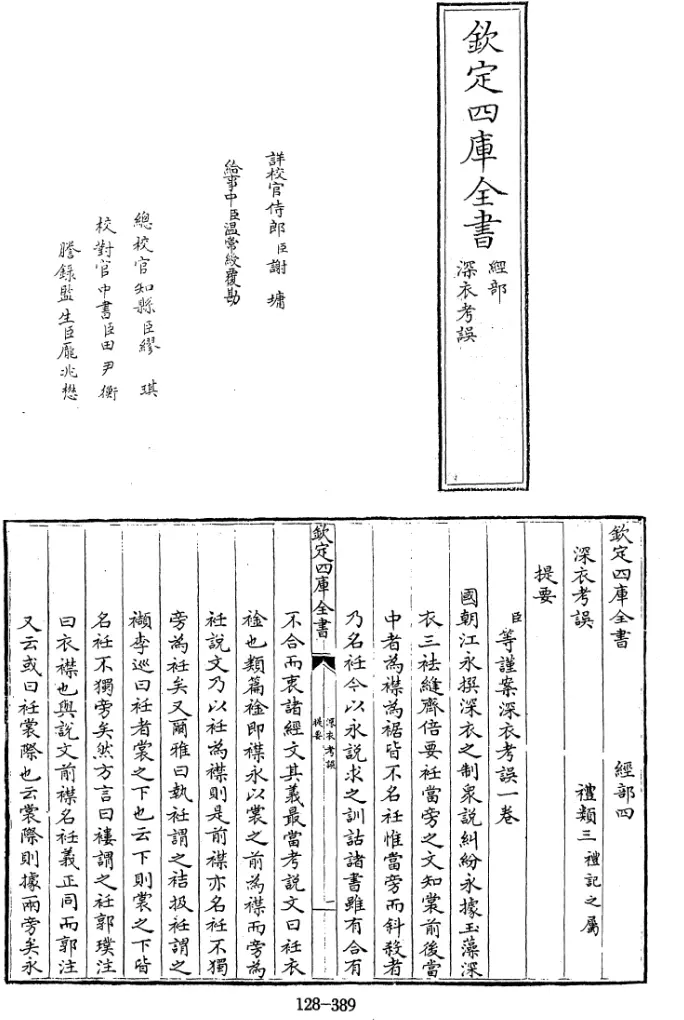 欽定四庫全書
經部
深衣考誤
詳校官侍郎臣謝墉
給事中臣温常綬覆勘
總校官知縣臣繆琪
校對官中書臣田尹衡
謄錄監生臣龐兆懋
欽定四庫全書 經部四
深衣考誤 禮類三 禮記之屬
提要
臣等謹案深衣考誤一卷
國朝江永撰深衣之制衆說糾紛永據玉藻深
衣三袪縫齊倍要衽當旁之文知裳前後當
中者為襟為裾皆不名衽惟當旁而斜殺者
乃名衽今以永說求之訓詁諸書雖有合有
欽定四庫全書
深衣考誤
提要
一
不合而衷諸經文其義最當考說文曰衽衣
䘳也類篇䘳即襟永以裳之前為襟而旁為
衽說文乃以衽為襟則是前襟亦名衽不獨
旁為衽矣又爾雅曰執衽謂之袺扱衽謂之
襭李巡曰衽者裳之下也云下則裳之下皆
名衽不獨旁矣然方言曰褸謂之衽郭璞注
曰衣襟也與說文前襟名衽義正同而郭注
又云或曰衽裳際也云裳際則據兩旁矣永
128-389